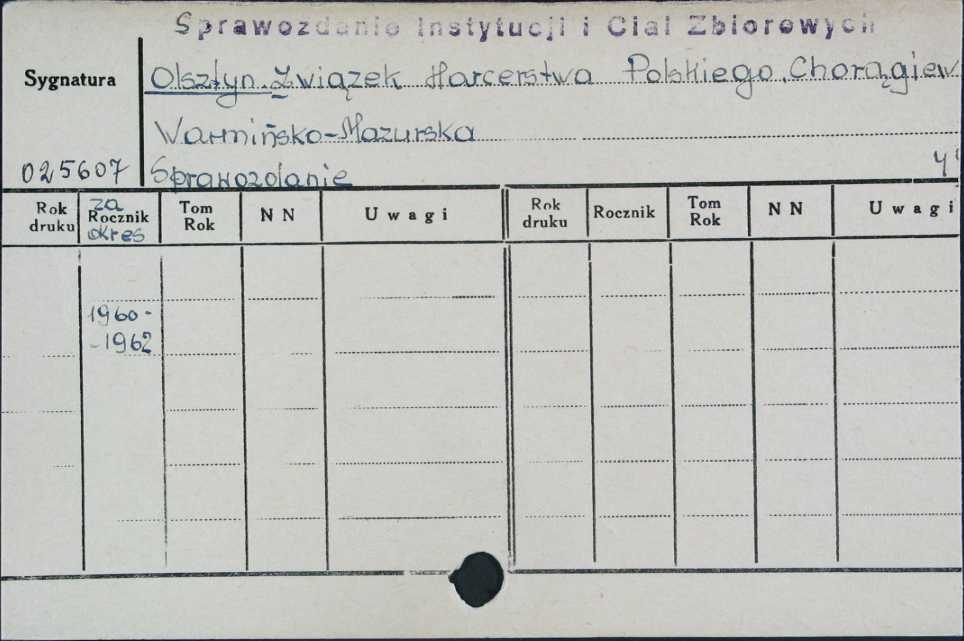 Sprawozdanie Instytucji i Ciał Zbiorowych
Sygnatura
Olsztyn. Związek Harcerstwa Polskiego. Chorągiew
Warmińsko-Mazurska
025607
Sprawozdanie
Rok druku
za Rocznik okres
Tom Rok
NN
Uwagi
Rok druku
Rocznik
Tom Rok
NN
Uwagi
1960-
-1962